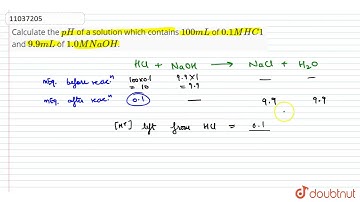 11037205
Calculate the pH of a solution which contains 100mL of 0.1MHC1
and 9.9mL of 1.0MNaOH.
HCl + NaOH → NaCl + H2O
mEq. before reacn 100x0.1 9.9x1 — —
= 10 = 9.9
mEq. after reacn 0.1 — 9.9 9.9
[H+] left from HCl = 0.1
doubtnut